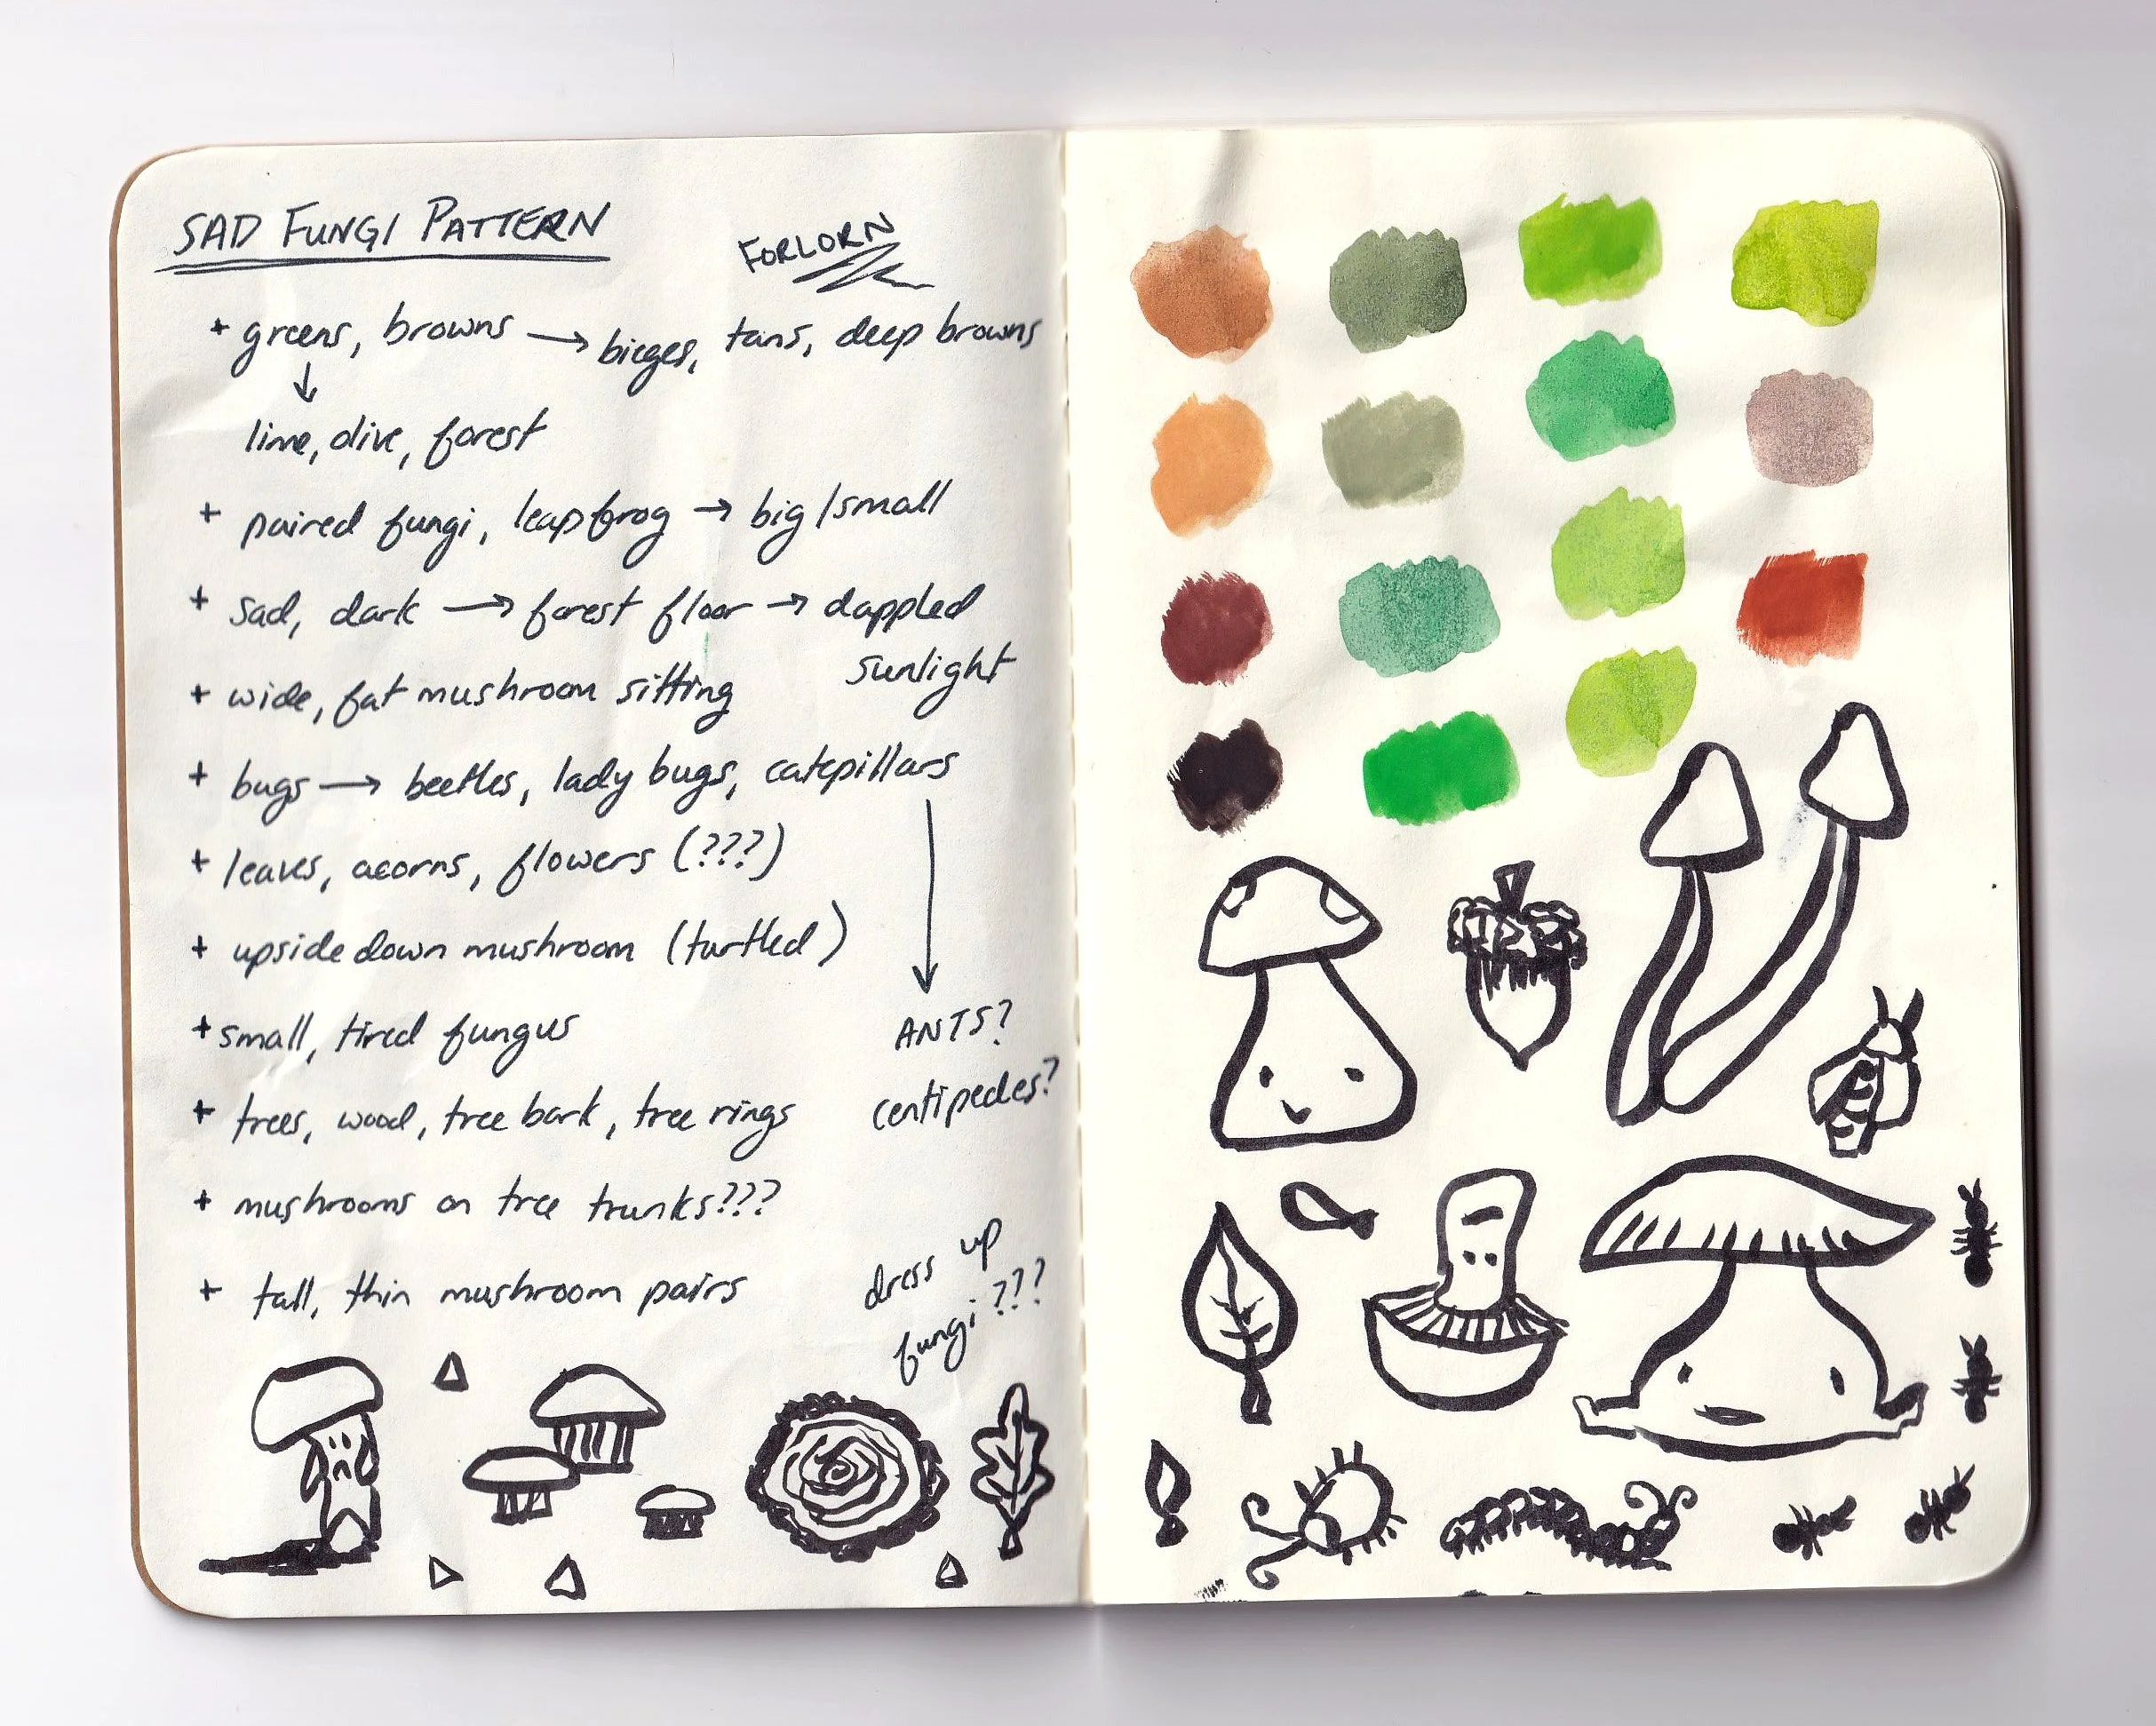 SAD FUNGI PATTERN
FORLORN
+ greens, browns → bieges, tans, deep browns
↓
lime, olive, forest
+ paired fungi, leapfrog → big/small
+ sad, dark → forest floor → dappled
sunlight
+ wide, fat mushroom sitting
+ bugs → beetles, lady bugs, catepillars
+ leaves, acorns, flowers (???)
+ upside down mushroom (turtled)
↓
ANTS?
centipedes?
+ small, tired fungus
+ trees, wood, tree bark, tree rings
+ mushrooms on tree trunks???
+ tall, thin mushroom pairs
dress up
fungi???